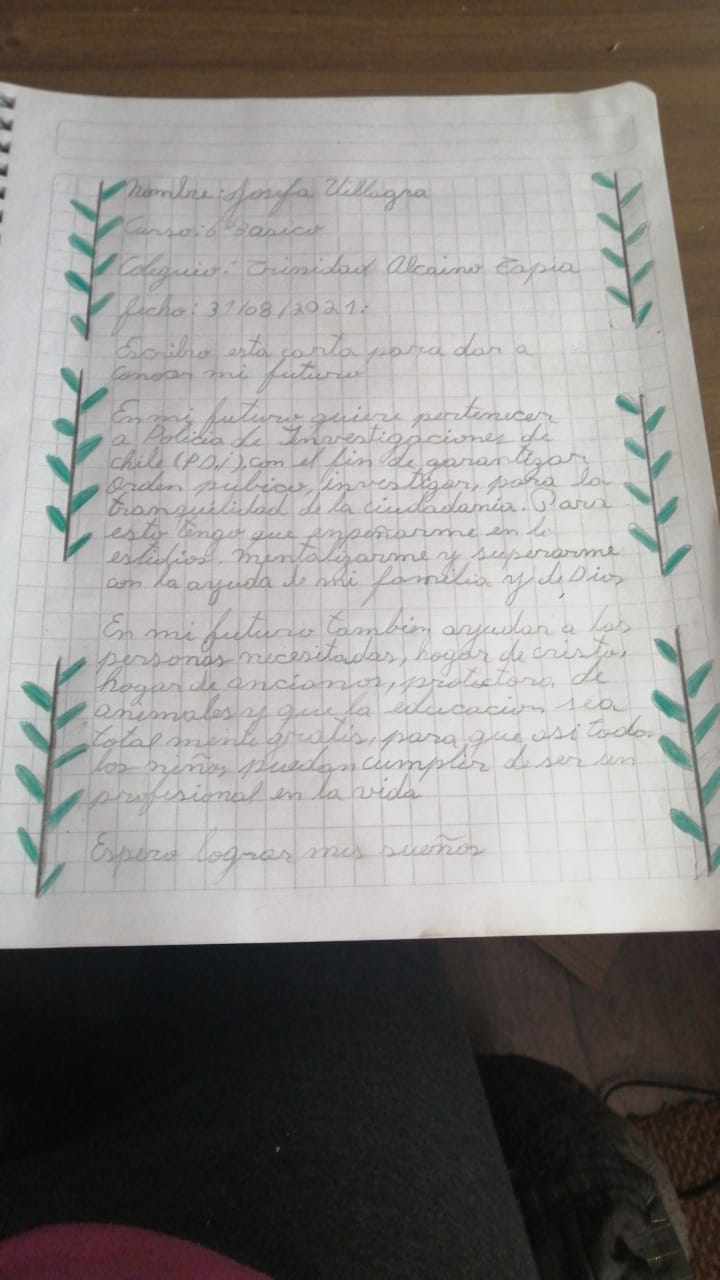 Nombre: Josefa Villagra
Curso: 6° Basico
Coleguio: Trinidad Alcaino Tapia
fecho: 31/08/2021.
Escribo esta carta para dar a
conoser mi futuro
En mi futuro quiere pertenecer
a Policia de Investigaciones de
chile (PD,i), con el fin de garantizar
orden pubico, investigar, para la
tranquelidad de la ciudadania. Para
esto tengo que enpeñarme en lo
estudios, mentalizarme y superarme
con la ayuda de mi familia y de Dios
En mi futuro tambien ayudar a las
personas necesitadas, hogar de cristo,
hogar de ancianos, protectora de
animales y que la educacion sea
total mente gratis, para que asi todo
los niños puedan cumplir de ser un
profisional en la vida
Espero lograr mis sueños